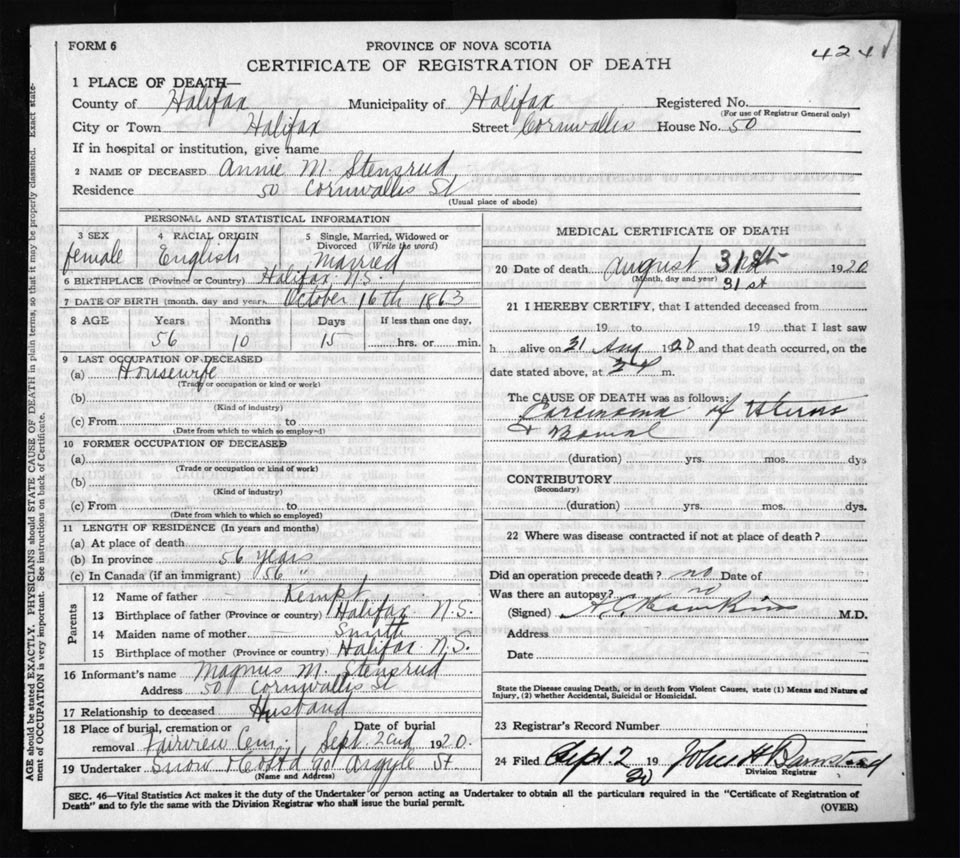 FORM 6
PROVINCE OF NOVA SCOTIA
4241
CERTIFICATE OF REGISTRATION OF DEATH
1 PLACE OF DEATH—
County of Halifax Municipality of Halifax Registered No.
(For use of Registrar General only)
City or Town Halifax Street Cornwallis House No. 50
If in hospital or institution, give name
2 NAME OF DECEASED Annie M. Stensrud
Residence 50 Cornwallis St
(Usual place of abode)
PERSONAL AND STATISTICAL INFORMATION
3 SEX 4 RACIAL ORIGIN 5 Single, Married, Widowed or Divorced (Write the word)
female English Married
6 BIRTHPLACE (Province or Country) Halifax N.S.
7 DATE OF BIRTH (month, day and year) October 16th 1863
8 AGE Years Months Days If less than one day,
56 10 15 hrs. or min.
9 LAST OCCUPATION OF DECEASED
(a) Housewife
(Trade or occupation or kind or work)
(b)
(Kind of industry)
(c) From to
(Date from which to which so employed)
10 FORMER OCCUPATION OF DECEASED
(a)
(Trade or occupation or kind of work)
(b)
(Kind of industry)
(c) From to
(Date from which to which so employed)
11 LENGTH OF RESIDENCE (In years and months)
(a) At place of death
(b) In province 56 years
(c) In Canada (if an immigrant) 56 "
Parents
12 Name of father — Kempt
13 Birthplace of father (Province or country) Halifax N.S.
14 Maiden name of mother — Smith
15 Birthplace of mother (Province or country) Halifax N.S.
16 Informant's name Magnus M. Stensrud
Address 50 Cornwallis St
17 Relationship to deceased Husband
18 Place of burial, cremation or removal Fairview Cem. Date of burial Sept. 2nd 1920.
19 Undertaker Snow & Co Ltd 90 Argyle St.
(Name and Address)
MEDICAL CERTIFICATE OF DEATH
20 Date of death August 31st 1920
(Month, day and year) 31st
21 I HEREBY CERTIFY, that I attended deceased from
19 to 19 that I last saw
h alive on 31 Aug 1920 and that death occurred, on the
date stated above, at m.
The CAUSE OF DEATH was as follows:
Carcinoma of Uterus
& Bowel
(duration) yrs. mos. dys
CONTRIBUTORY
(Secondary)
(duration) yrs. mos. dys.
22 Where was disease contracted if not at place of death?
Did an operation precede death? no Date of
Was there an autopsy? no
(Signed) M.D.
Address
Date
State the Disease causing Death, or in death from Violent Causes, state (1) Means and Nature of
Injury, (2) whether Accidental, Suicidal or Homicidal.
23 Registrar's Record Number
24 Filed Sept. 2 1920 John H Barnstead
Division Registrar
SEC. 46—Vital Statistics Act makes it the duty of the Undertaker or person acting as Undertaker to obtain all the particulars required in the "Certificate of Registration of
Death" and to fyle the same with the Division Registrar who shall issue the burial permit.
(OVER)
AGE should be stated EXACTLY. PHYSICIANS should STATE CAUSE OF DEATH in plain terms, so that it may be properly classified. Exact state-
ment of OCCUPATION is very important. See instructions on back of Certificate.